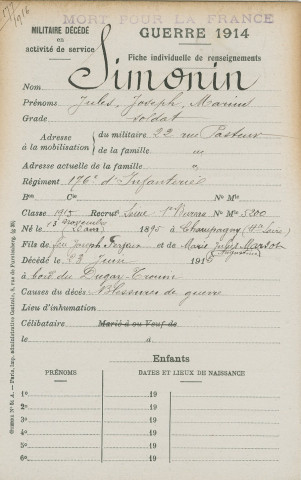 17/1916
MORT POUR LA FRANCE
MILITAIRE DÉCÉDÉ en activité de service
GUERRE 1914
Fiche individuelle de renseignements
Simonin
Nom
Prénoms Jules, Joseph, Marius
Grade soldat
Adresse à la mobilisation
du militaire 22 rue Pasteur
de la famille "
Adresse actuelle de la famille "
Régiment 176e d'Infanterie
Bon Cie No Mle
Classe 1915 Recrut Seine 1er Bureau No Mle 5200
Né le 3 Novembre 1895 à Champagny (Hte Saône)
Fils de feu Joseph et de Marie
Décédé le 23 Juin 1916
à bord du Dugay-Trouin
Causes du décès Blessures de guerre
Lieu d'inhumation
Célibataire Marié à ou Veuf de
le à
Enfants
PRÉNOMS DATES ET LIEUX DE NAISSANCE
1o 19
2o 19
3o 19
4o 19
5o 19
6o 19